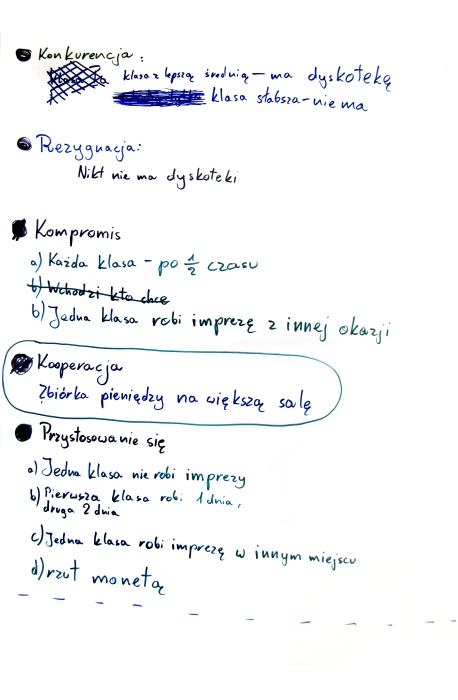 Konkurencja:
klasa z lepszą średnią – ma dyskotekę
klasa słabsza – nie ma
Rezygnacja:
Nikt nie ma dyskoteki
Kompromis
a) Każda klasa – po 1/2 czasu
b) Wchodzi kto chce
b) Jedna klasa robi imprezę z innej okazji
Kooperacja
Zbiórka pieniędzy na większą salę
Przystosowanie się
a) Jedna klasa nie robi imprezy
b) Pierwsza klasa robi 1 dnia,
druga 2 dnia
c) Jedna klasa robi imprezę w innym miejscu
d) rzut monetą